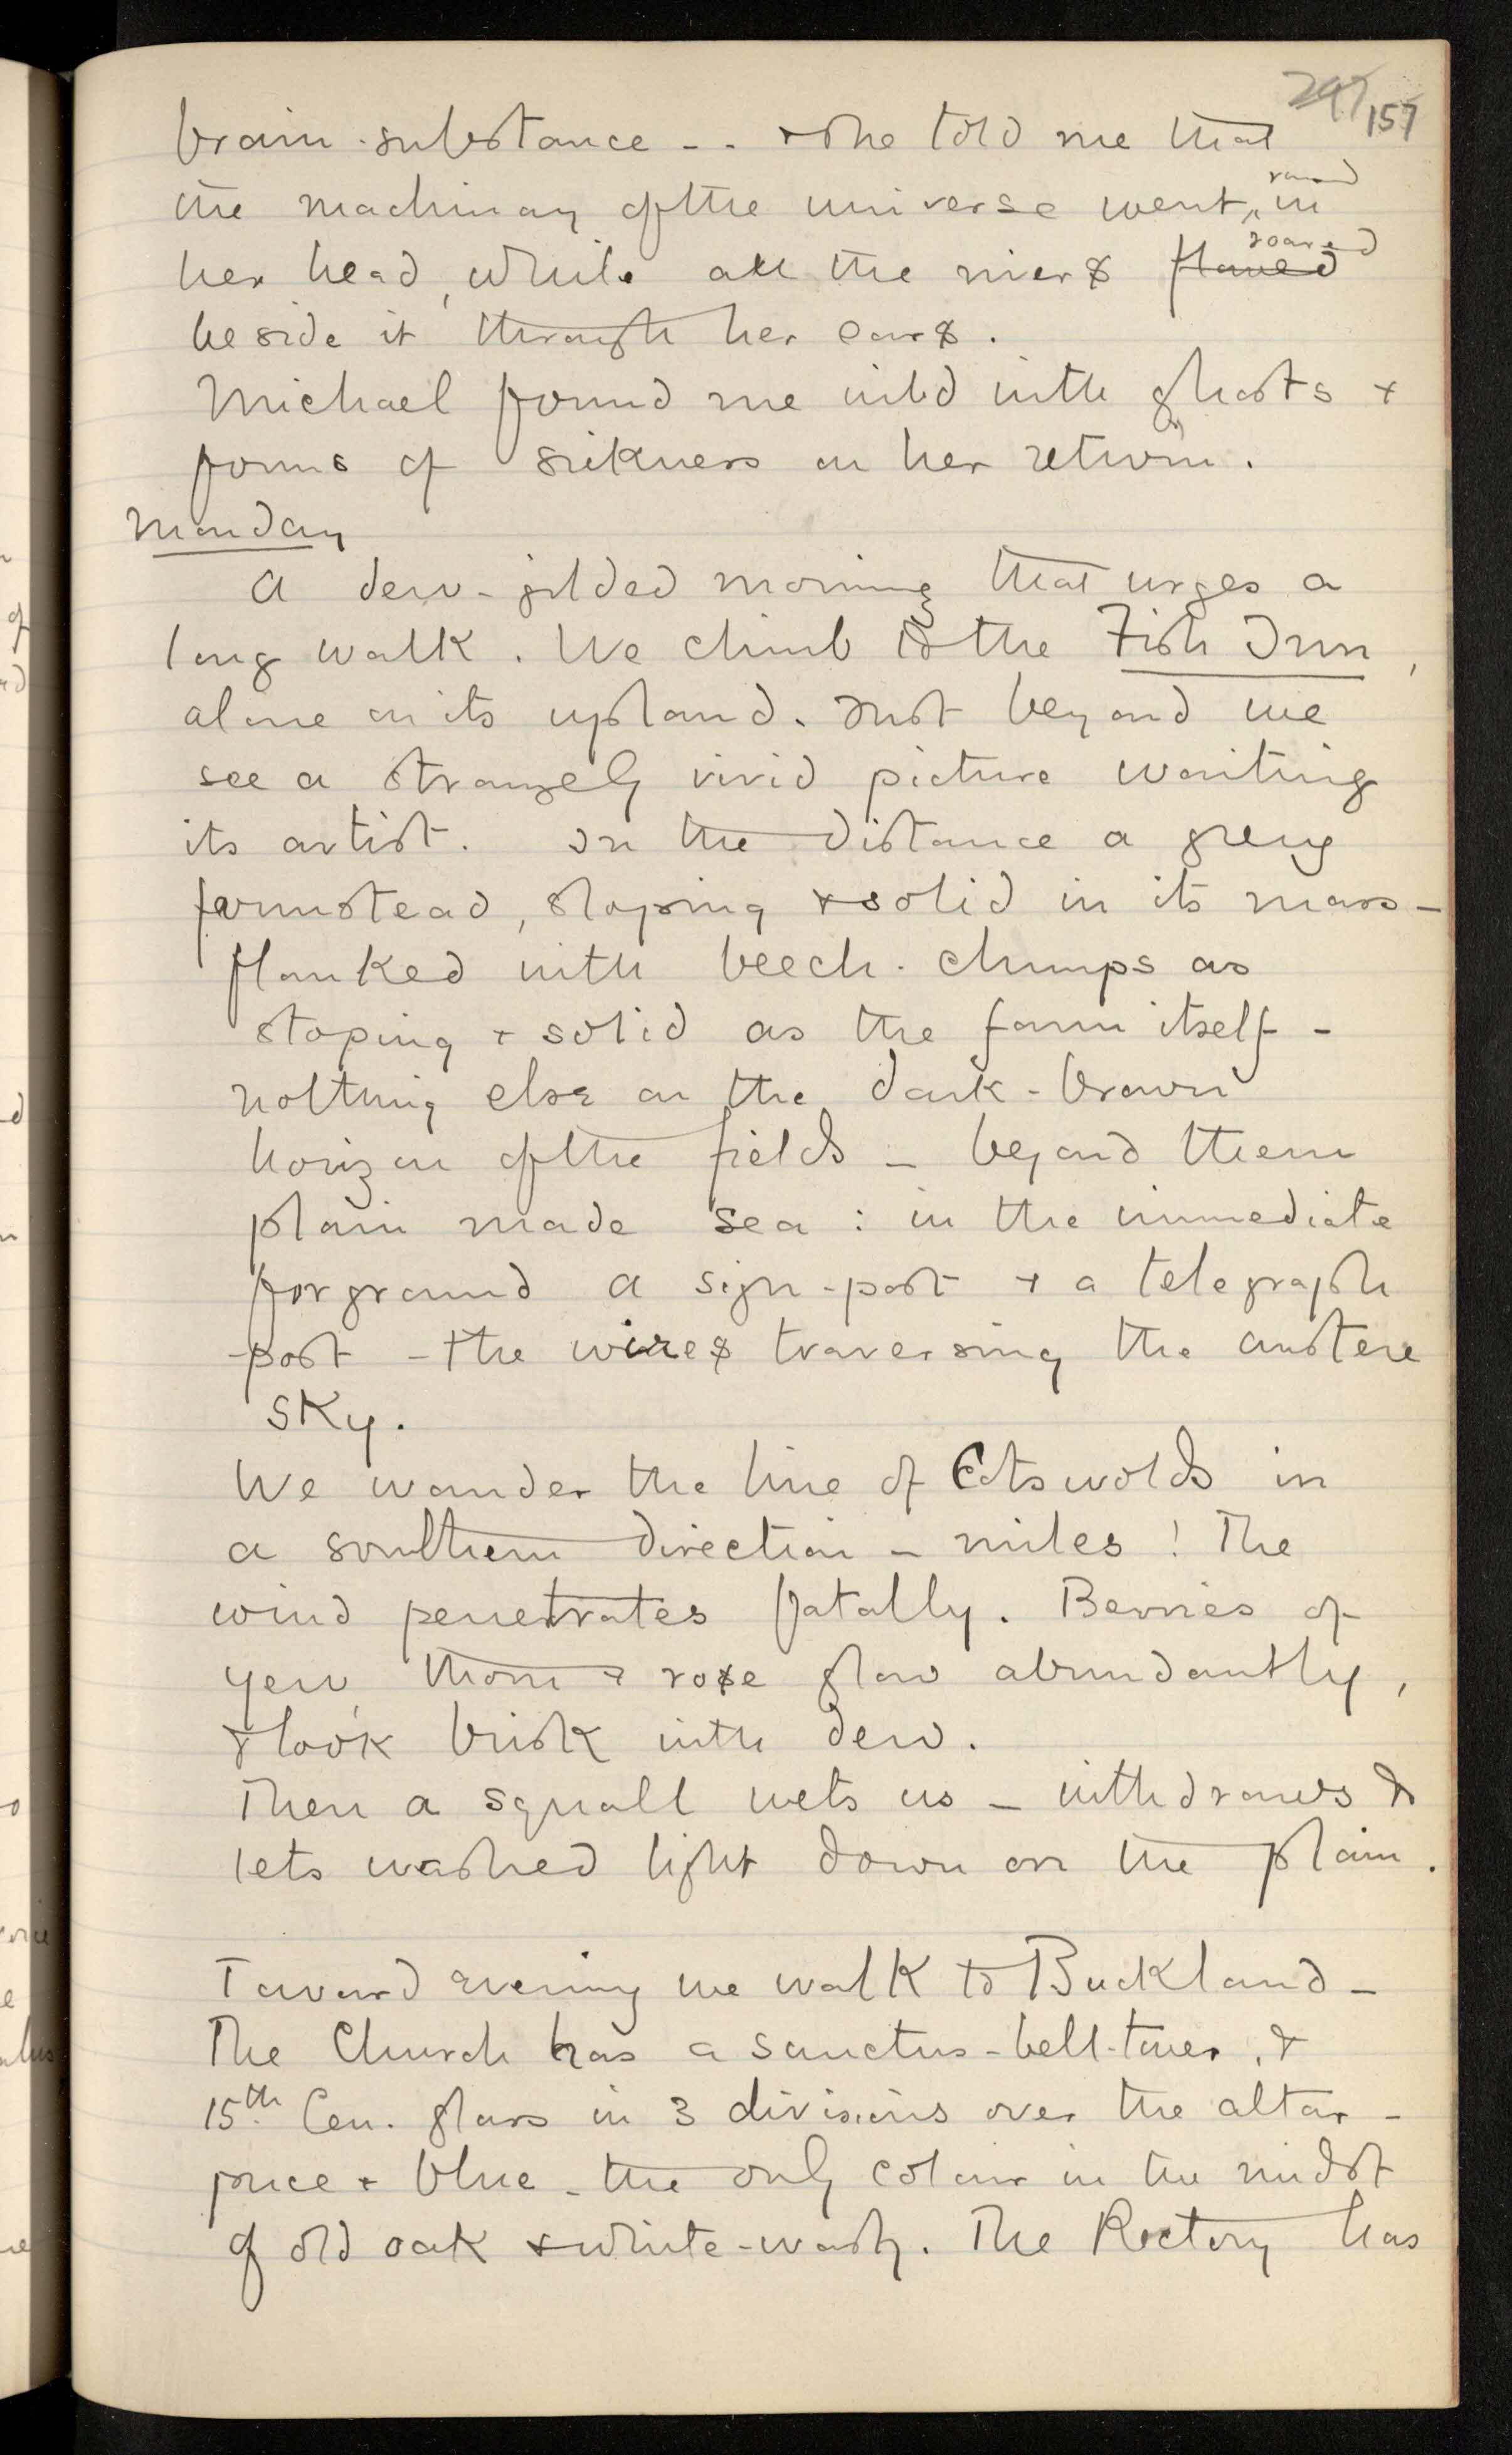 297/157
brain-substance - - & she told me that
the machinary of the universe went ^round in
her head, while all the rivers flowed roared
beside it through her ears.
Michael found me wild with ghosts &
forms of sickness on her return.
Monday
A dew-gilded morning that urges a
long walk. We climb to the Fish Inn,
alone on its upland. Just beyond we
see a strangely vivid picture waiting
its artist. In the distance a grey
farmstead, sloping & solid in its mass -
flanked with beech-clumps as
sloping & solid as the farm itself -
nothing else on the dark-brown
horizon of the fields - beyond them
plain made sea: in the immediate
forground a sign-post & a telegraph
-post - the wires traversing the austere
sky.
We wander the line of Cotswolds in
a southern direction - miles! The
wind penetrates fatally. Berries of
yew, thorn & rose glow abundantly,
& look brisk with dew.
Then a squall wets us - withdraws &
lets washed light down on the plain.
Toward evening we walk to Buckland -
The Church has a sanctus-bell-tower, &
15th Cen. glass in 3 divisions over the altar -
puce & blue - the only colour in the midst
of old oak & white-wash. The Rectory has